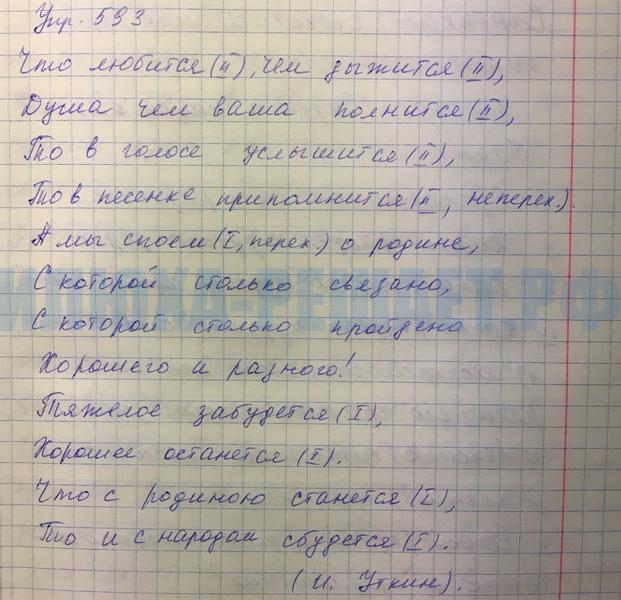 Упр. 593
Что любится (II), чем дыжится (II),
Душа чем ваша полнится (II),
То в голосе услышится (II),
То в песенке припомнится (II, неперех.).
А мы споем (I, перех.) о родине,
С которой столько связано,
С которой столько пройдено
Хорошего и разного!
Тяжелое забудется (I),
Хорошее останется (I).
Что с родиною станется (I),
То и с народом сбудется (I).
(И. Уткин).